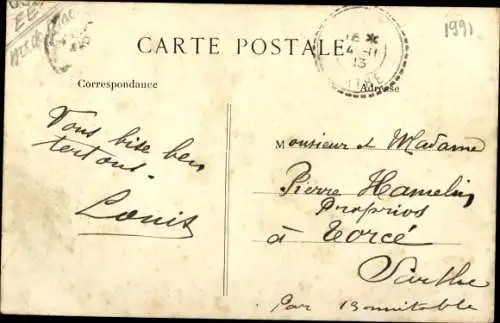 1991
CARTE POSTALE
4 -11
13
Correspondance
Adresse
Vous bise ben
tertous.
Louis
Monsieur et Madame
Pierre Hamelin
Propriós
à Torcé
Sarthe
Par Bonnétable